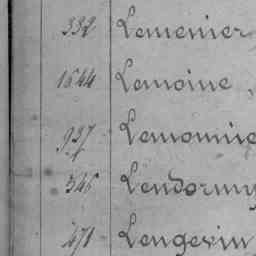 332 Lemenier
1644 Lemoine,
937 Lemonnie
346 Lendormy
471 Lengevin